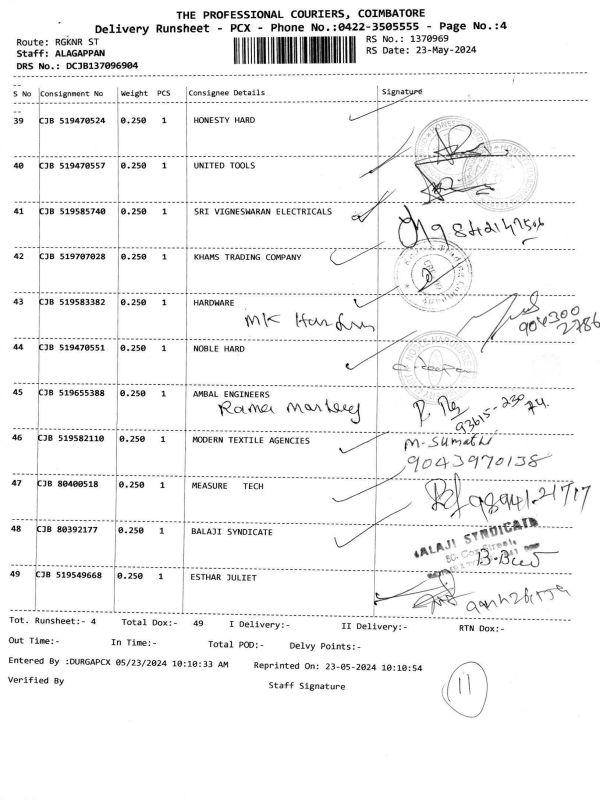 THE PROFESSIONAL COURIERS, COIMBATORE
Delivery Runsheet - PCX - Phone No.:0422-3505555 - Page No.:4
Route: RGKNR ST
RS No.: 1370969
Staff: ALAGAPPAN
RS Date: 23-May-2024
DRS No.: DCJB137096904
S No Consignment No Weight PCS Consignee Details Signature
39 CJB 519470524 0.250 1 HONESTY HARD
40 CJB 519470557 0.250 1 UNITED TOOLS
41 CJB 519585740 0.250 1 SRI VIGNESWARAN ELECTRICALS
42 CJB 519707028 0.250 1 KHAMS TRADING COMPANY
43 CJB 519583382 0.250 1 HARDWARE
MK
904300
2286
44 CJB 519470551 0.250 1 NOBLE HARD
45 CJB 519655388 0.250 1 AMBAL ENGINEERS
93615-230
74.
46 CJB 519582110 0.250 1 MODERN TEXTILE AGENCIES M-Sumathi
9043970138
47 CJB 80400518 0.250 1 MEASURE TECH
98941-21717
48 CJB 80392177 0.250 1 BALAJI SYNDICATE
ALAJI SYNDICATE
49 CJB 519549668 0.250 1 ESTHAR JULIET
Tot. Runsheet:- 4 Total Dox:- 49 I Delivery:- II Delivery:- RTN Dox:-
Out Time:- In Time:- Total POD:- Delvy Points:-
Entered By :DURGAPCX 05/23/2024 10:10:33 AM Reprinted On: 23-05-2024 10:10:54
Verified By Staff Signature
11